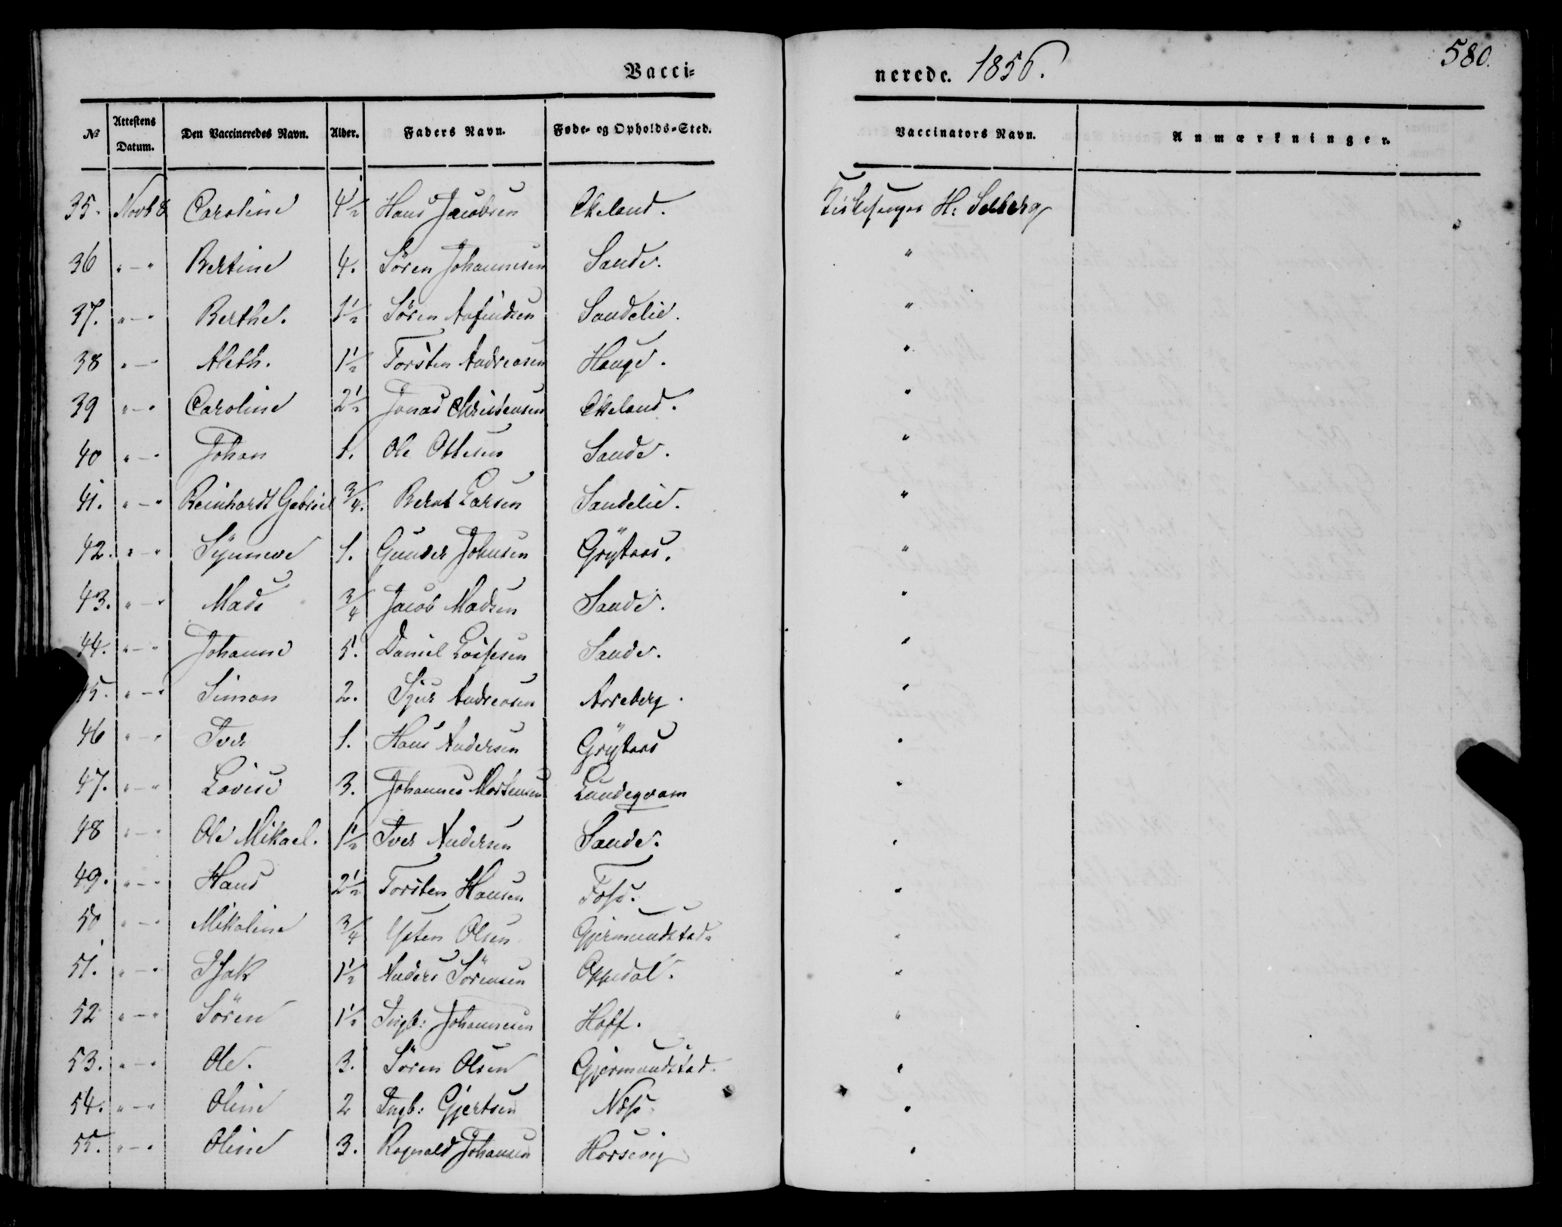 Vacci-
nerede. 1856.
580.
No
Attestens Datum.
Den Vaccineredes Navn.
Alder.
Faders Navn.
Føde- og Opholds-Sted.
Vaccinators Navn.
Anmærkninger.
35. Novb 8 Caroline 4½ Hans Jacobsen Ekeland. Kirkesanger H. Solberg
36 " — " Bertine 4. Søren Johannesen Sande. "
37. " — " Berthe. 1½ Søren Arfindsen Sandelie. "
38 " — " Aleth. 1½ Torsten Andreasen Hauge. "
39 " — " Caroline 2½ Jonas Christensen Ekeland. "
40 " — " Johan 1. Ole Ottesen Sande. "
41. " — " Reinhardt Gabriel ¾. Bernt Larsen Sandelie. "
42. " — " Synneve 1. Gunder Johnsen Grytaas. "
43. " — " Mads ¾ Jacob Madsen Sande. "
44. " — " Johanne 5. Daniel Sande. "
45. " — " Simon 2. Sjur Andreasen Arreberg. "
46 " — " Iver 1. Hans Andersen Grytaas "
47. " — " Lovise 3. Johannes Mortensen Landegvam "
48 " — " Ole Mikael. 1½ Iver Andersen Sande. "
49. " — " Hans 2½ Torsten Hansen Foss. "
50 " — " Mikaline ¾ Olsen Gjermundstad. "
51. " — " Isak 1½ Anders Sørensen Oppedal. "
52 " — " Søren 1½ Ingb: Johannesen Hoff. "
53. " — " Ole. 3. Søren Olsen Gjermundstad. "
54. " — " Oline 2 Ingb: Gjertsen Næss. "
55. " — " Oline 3. Ragnald Johansen Horsevig "